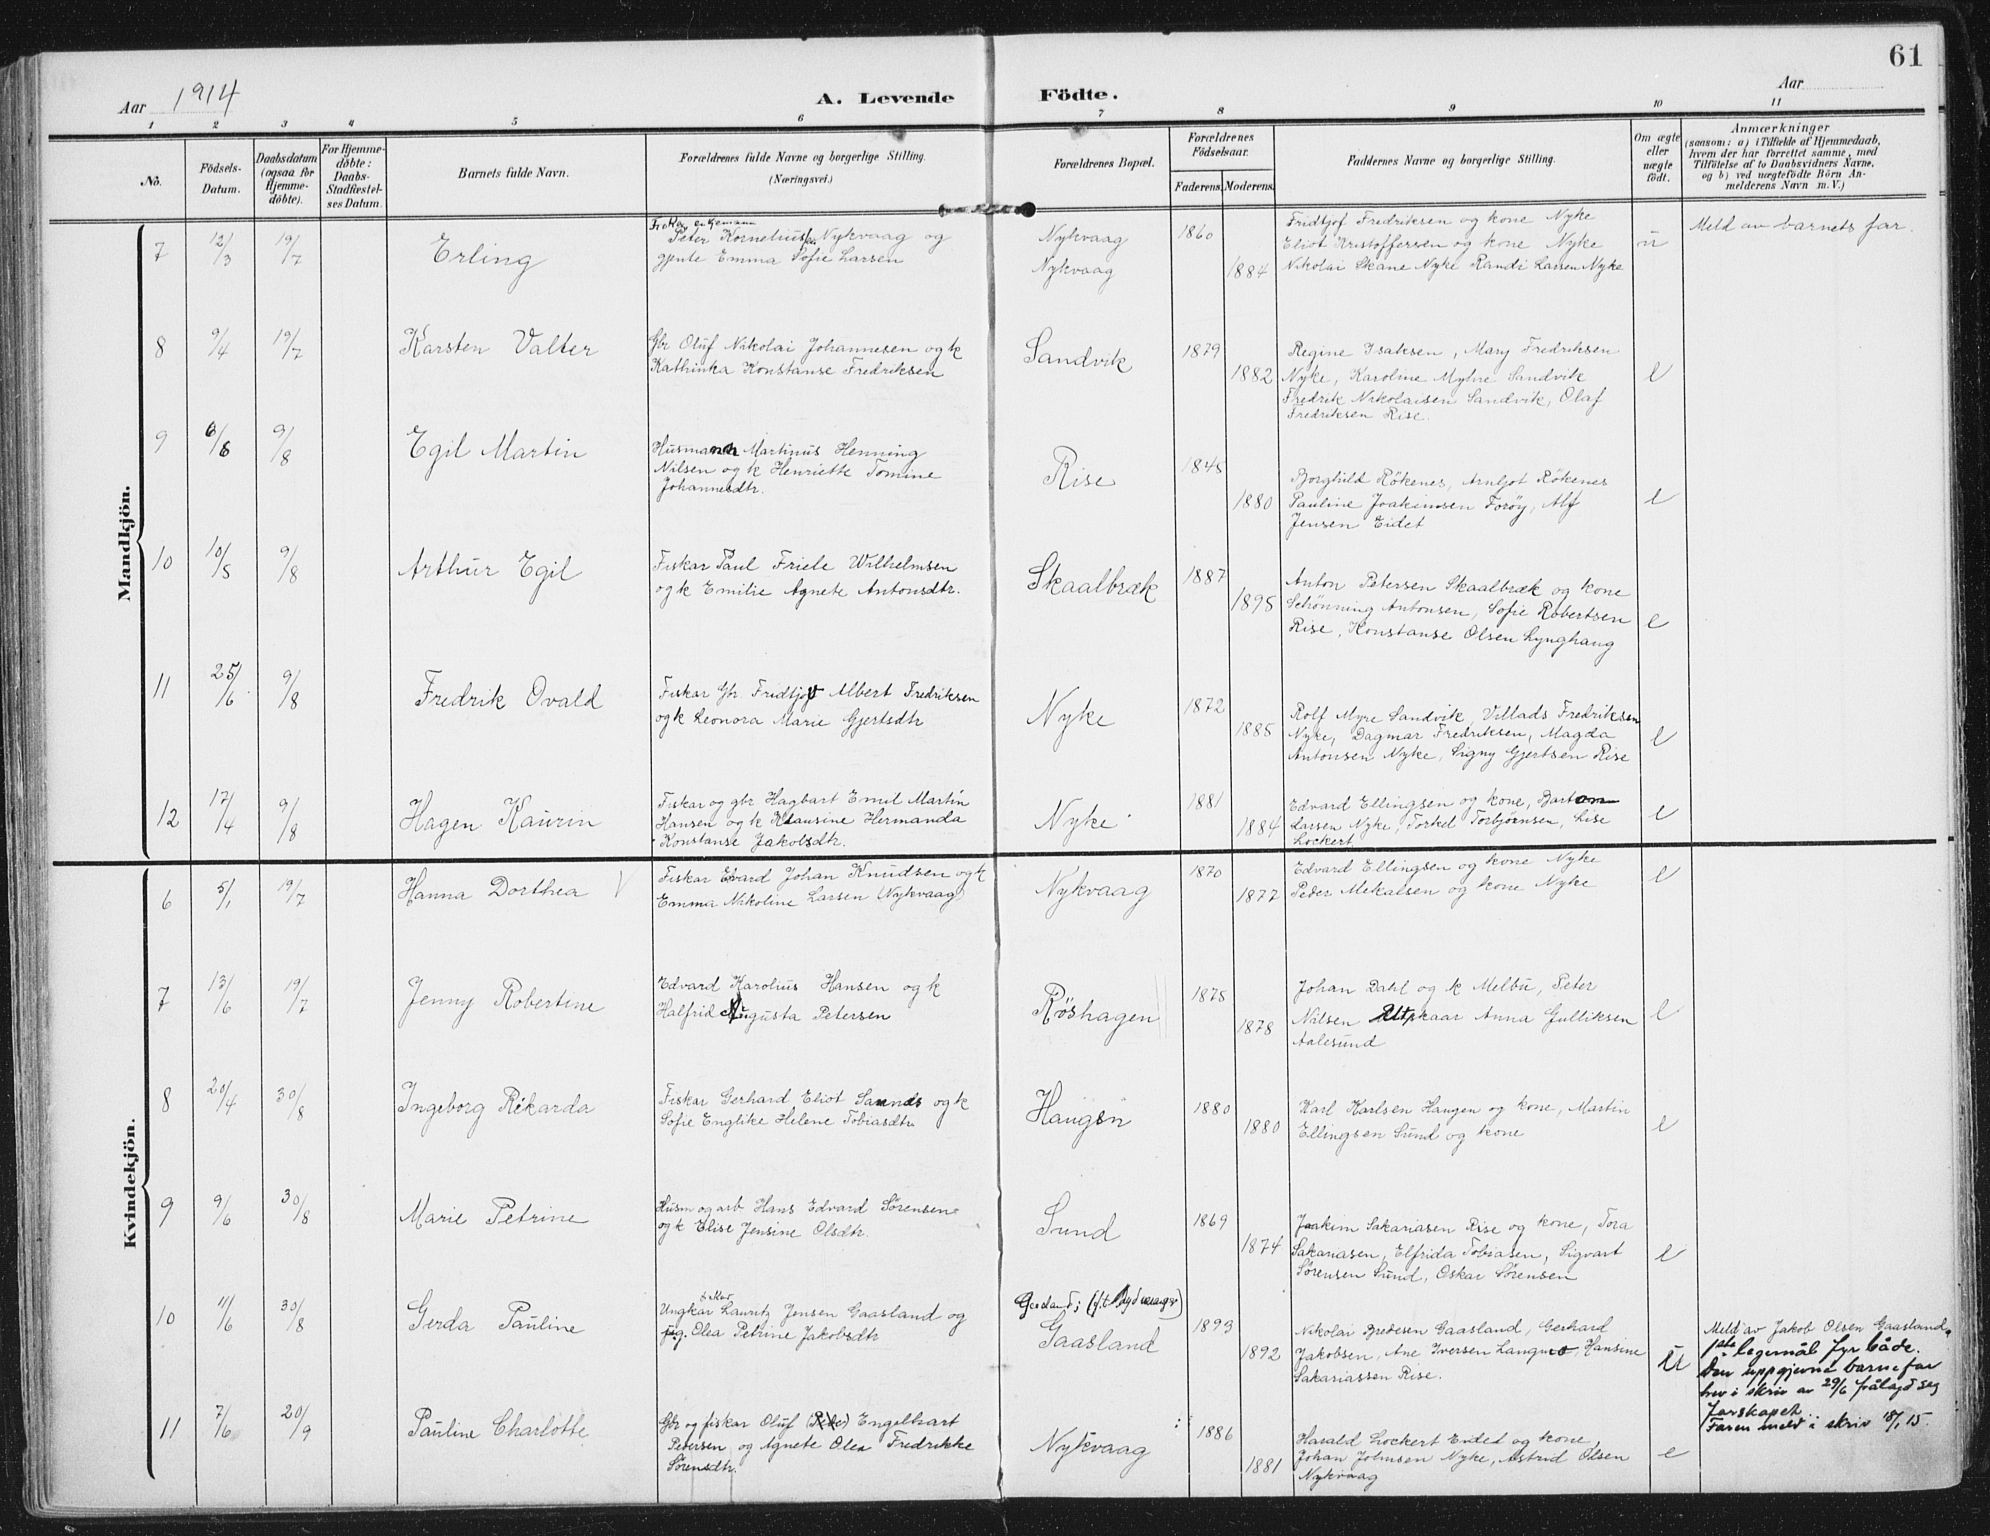 61
Aar 1914
A. Levende Födte.
Aar
1 2 3 4 5 6 7 8 9 10 11
No.
Födsels-
Datum.
Daabsdatum
(ogsaa for
Hjemme-
döbte).
For Hjemme-
döbte:
Daabs-
Stadfæstel-
ses Datum.
Barnets fulde Navn.
Forældrenes fulde Navne og borgerlige Stilling.
(Næringsvei.)
Forældrenes Bopæl.
Forældrenes
Födselsaar.
Faderens. Moderens.
Faddernes Navne og borgerlige Stilling.
Om ægte
eller
uægte
födt.
Anmærkninger
(saasom: a) i Tilfælde af Hjemmedaab,
hvem der har forrettet samme, med
Tilföielse af to Daabsvidners Navne,
og b) ved uægtefödte Börn An-
melderens Navn m. V.)
Mandkjön.
7 12/3 19/7 Erling
Peter Kornelius Nykvaag og
gjente Emma Sofie Larsen
Nykvaag
Nykvaag
1860
1884
Fridtjof Fredriksen og kone Nyke
Eliot Kristoffersen og kone Nyke
Nikolai Skane Nyke Randi Larsen Nyke
u
Meld av barnets far.
8 9/4 19/7 Karsten Valter
Gbr Oluf Nikolai Johannesen og k
Kathinka Konstanse Fredriksen
Sandvik
1879
1882
Regine Isaksen, Mary Fredriksen
Nyke, Karoline Myhre Sandvik
Fredrik Nikolaisen Sandvik, Olaf
Fredriksen Rise.
e
9 6/6 9/8 Egil Martin
Husmann Martinus Henning
Nilsen og k Henriette Tomine
Johannesdtr.
Rise
1845
1880
Borghild Rökenes, Arnljot Rökenes
Pauline Joakimsen Forøy, Alf
Jensen Eidet
e
10 10/5 9/8 Arthur Egil
Fiskar Paul Friele Wilhelmsen
og k Emilie Agnete Antonsdtr.
Skaalbræk
1887
1895
Anton Petersen Skaalbræk og kone
Schönning Antonsen, Sofie Robertsen
Rise, Konstanse Olsen Lynghaug
e
11 25/6 9/8 Fredrik Ovald
Fiskar Gbr Fridtjov Albert Fredriksen
og k Leonora Marie Gjertsdtr
Nyke
1872
1885
Rolf Myre Sandvik, Villads Fredriksen
Nyke, Dagmar Fredriksen, Magda
Antonsen Nyke, Signy Gjertsen Rise
e
12 17/4 9/8 Hagen Kaurin
Fiskar og gbr Hagbart Emil Martin
Hansen og k Klausine Hermanda
Konstanse Jakobsdtr.
Nyke
1881
1884
Edvard Ellingsen og kone,
Larsen Nyke, Torkel Torbjørnsen, Lise
Lockert
e
Kvindekjön.
6 5/1 19/7 Hanna Dorthea V
Fiskar Edvard Johan Knudsen og k
Emma Nikoline Larsen (Nykvaag)
Nykvaag
1870
1877
Edvard Ellingsen og kone Nyke
Peder Mekalsen og kone Nyke
e
7 13/6 19/7 Jenny Robertine
Edvard Karolius Hansen og k
Halfrid Augusta Petersen
Røshagen
1875
1878
Johan Dahl og k Melbu, Peter
Nilsen Anna Gulliksen
Aalesund
e
8 20/4 30/8 Ingeborg Rikarda
Fiskar Gerhard Eliot og k
Sofie Englike Helene Tobiasdtr
Haugen
1880
1880
Karl Karlsen Haugen og kone, Martin
Ellingsen Sund og kone
e
9 9/6 30/8 Marie Petrine
Husm og arb Hans Edvard Sørensen
og k Elise Jensine Olsdtr.
Sund
1869
1874
Joakim Sakariasen Rise og kone, Tora
Sakariasen, Elfrida Tobiasen, Sigvart
Sørensen Sund, Oskar Sørensen
e
10 11/6 30/8 Gerda Pauline
Ungkar Lauritz Jensen Gaasland og
pig. Olea Petrine Jakobsdtr
Gaasland
1893
1892
Nikolai Bredesen Gaasland, Gerhard
Jakobsen, Ane Iversen Langnes, Hansine
Sakariassen Rise.
u
Meld av Jakob Olsen Gaasland.
1ste legemål fyr både.
Den uppgjevne barnefar
hev i skriv av 29/6 pålagd seg
farskapet.
Faren meld i skriv 18/1 15.
11 7/6 20/9 Pauline Charlotte
Gbr og fiskar Oluf Engelhart
Petersen og Agnete Olea Fredrikke
Sørensdtr.
Nykvaag
1886
1881
Harald Lockert Eidet og kone,
Johan Johnsen Nyke, Astrid Olsen
Nykvaag
e